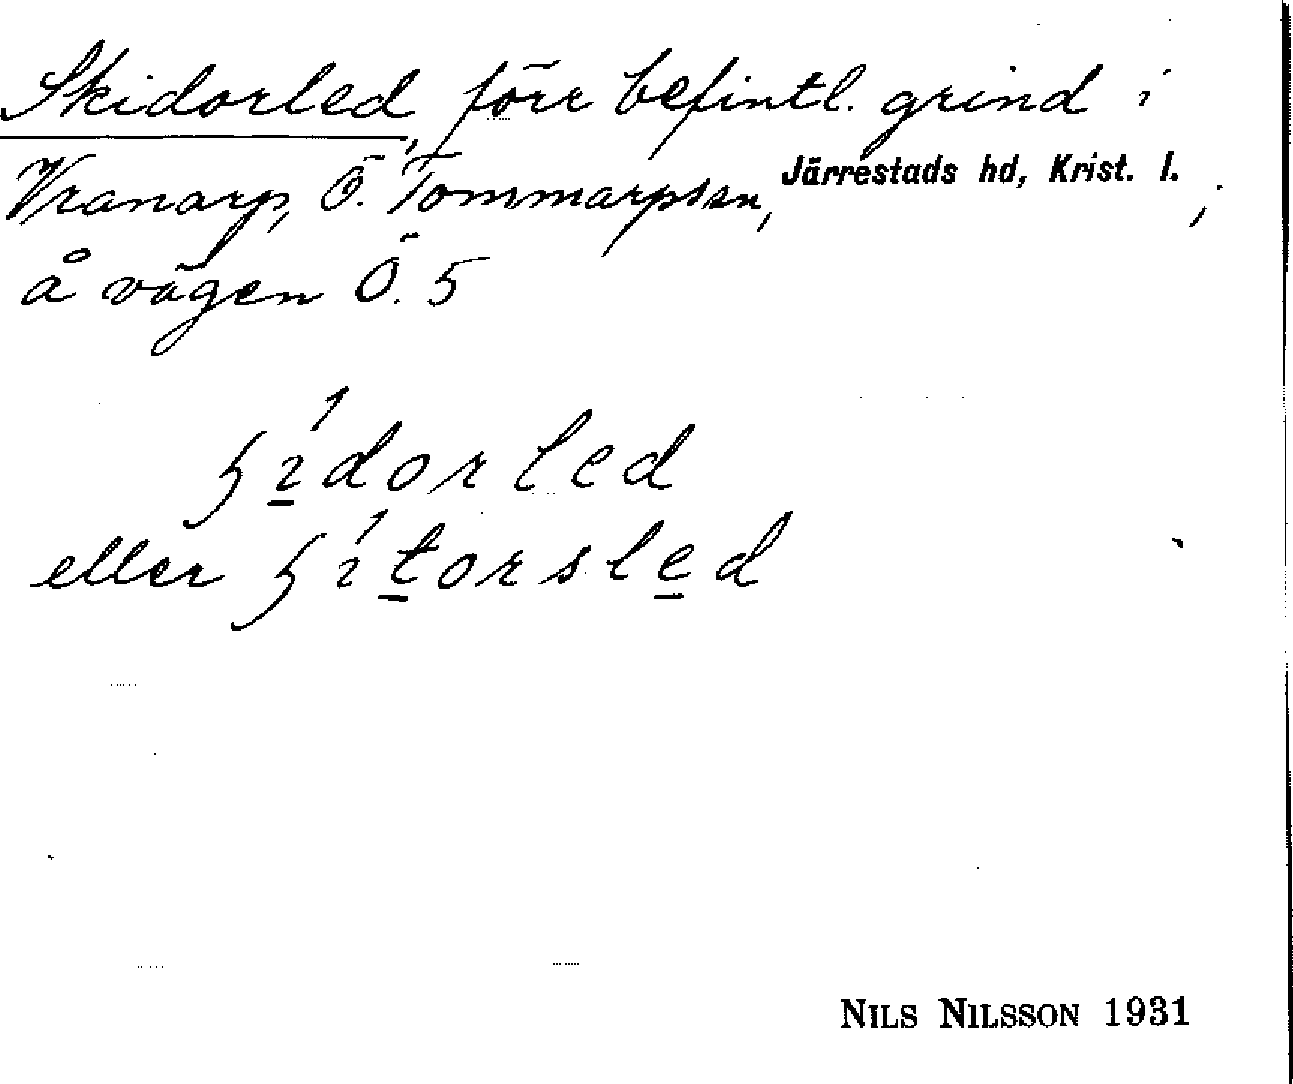 Skidorled, förr befintl. grind i
Vranarp, Ö. Tommarpssn, Järrestads hd, Krist. l. ;
å vägen Ö. 5
ʃi̲dorled
eller ʃit̲orsle̲d
NILS NILSSON 1931